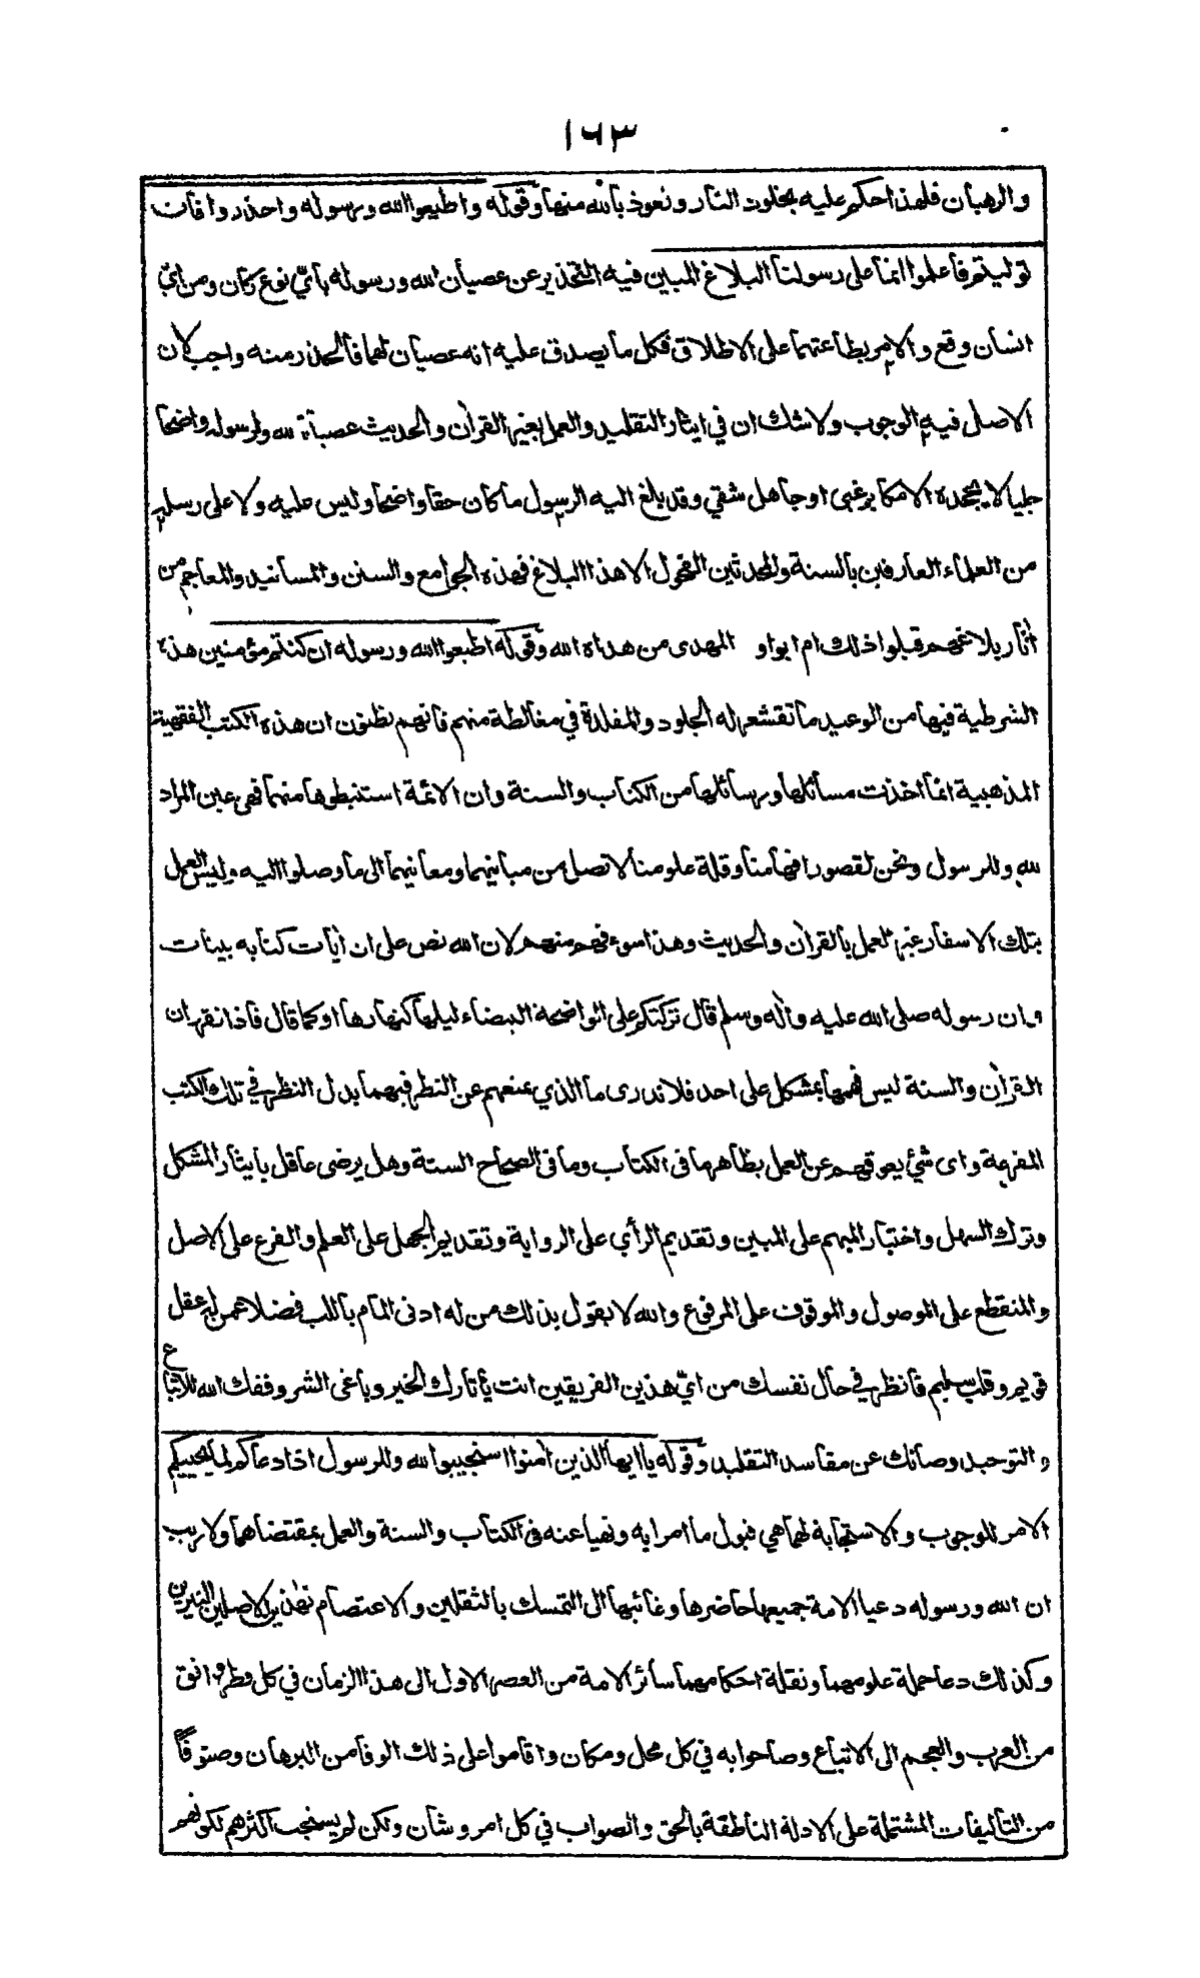 ١٦٣
والرهبان فلهذا حكم عليه بخلود النار ونعوذ بالله منها وقوله واطيعوا الله ورسوله واحذروا فان
توليتم فاعلموا انما على رسولنا البلاغ المبين فيه التحذير عن عصيان الله ورسوله باي نوع كان ومن اي
انسان وقع والامر بطاعتهما على الاطلاق فكل ما يصدق عليه انه عصيان لهما فالحذر منه واجب لان
الاصل فيه الوجوب ولا شك ان في ايثار التقليد والعمل بغير القرآن والحديث عصيانا لله ولرسوله واضحا
جليا لا يجحده الا مكابر غبى او جاهل شقي وقد بلغ اليه الرسول ما كان حقا واضحا وليس عليه ولا على رسله
من العلماء العارفين بالسنة والمحدثين الفحول الا هذا البلاغ فهذه الجوامع والسنن والمسانيد والمعاجم من
آثار بلاغهم قبلوا ذلك ام ابوا و المهدى من هداه الله وقوله اطيعوا الله ورسوله ان كنتم مؤمنين هذه
الشرطية فيها من الوعيد ما تقشعر له الجلود والمقلدة في مغالطة منهم فانهم يظنون ان هذه الكتب الفقهية
المذهبية انما اخذت مسائلها ورسائلها من الكتاب والسنة وان الائمة استنبطوها منهما فهى عين المراد
لله وللرسول ونحن لقصور افهامنا وقلة علومنا لا تصل من مبانيهما ومعانيهما الى ما وصلوا اليه وليس العمل
بتلك الاسفار غير العمل بالقرآن والحديث وهذا سوء فهم منهم لان الله نص على ان آيات كتابه بينات
وان رسوله صلى الله عليه وآله وسلم قال تركتكم على الواضحة البيضاء ليلها كنهارها او كما قال فاذا تقرر ان
القرآن والسنة ليس فهمها بمشكل على احد فلا ندرى ما الذي يمنعهم عن النظر فيهما بدل النظر في تلك الكتب
المفرعة واى شئ يعوقهم عن العمل بظاهر ما فى الكتاب وما فى الصحاح الستة وهل يرضى عاقل بايثار المشكل
وترك السهل واختيار المبهم على المبين وتقديم الرأي على الرواية وتقديم الجهل على العلم والفرع على الاصل
والمنقطع على الموصول والموقوف على المرفوع والله لا يقول بذلك من له ادنى المام باللب فضلا عمن له عقل
قويم وقلب سليم فانظر في حال نفسك من اي هذين الفريقين انت يا تارك الخير وباغى الشر وفقك الله للاتباع
والتوحيد وصانك عن مفاسد التقليد وقوله يا ايها الذين آمنوا استجيبوا لله وللرسول اذا دعاكم لما يحييكم
الامر للوجوب والاستجابة لهما هي قبول ما امرا به ونهيا عنه فى الكتاب والسنة والعمل بمقتضاهما ولا ريب
ان الله ورسوله دعيا الامة جميعها حاضرها وغائبها الى التمسك بالثقلين والاعتصام بهذين الاصلين النيرين
وكذلك دعا حملة علومهما ونقلة احكامهما سائر الامة من العصر الاول الى هذا الزمان في كل قطر وافق
من العرب والعجم الى الاتباع وصاحوا به في كل محل ومكان واقاموا على ذلك الوفا من البرهان وصنوفا
من التاليفات المشتملة على الادلة الناطقة بالحق والصواب في كل امر وشان ولكن لم يستجب اكثرهم لكونهم